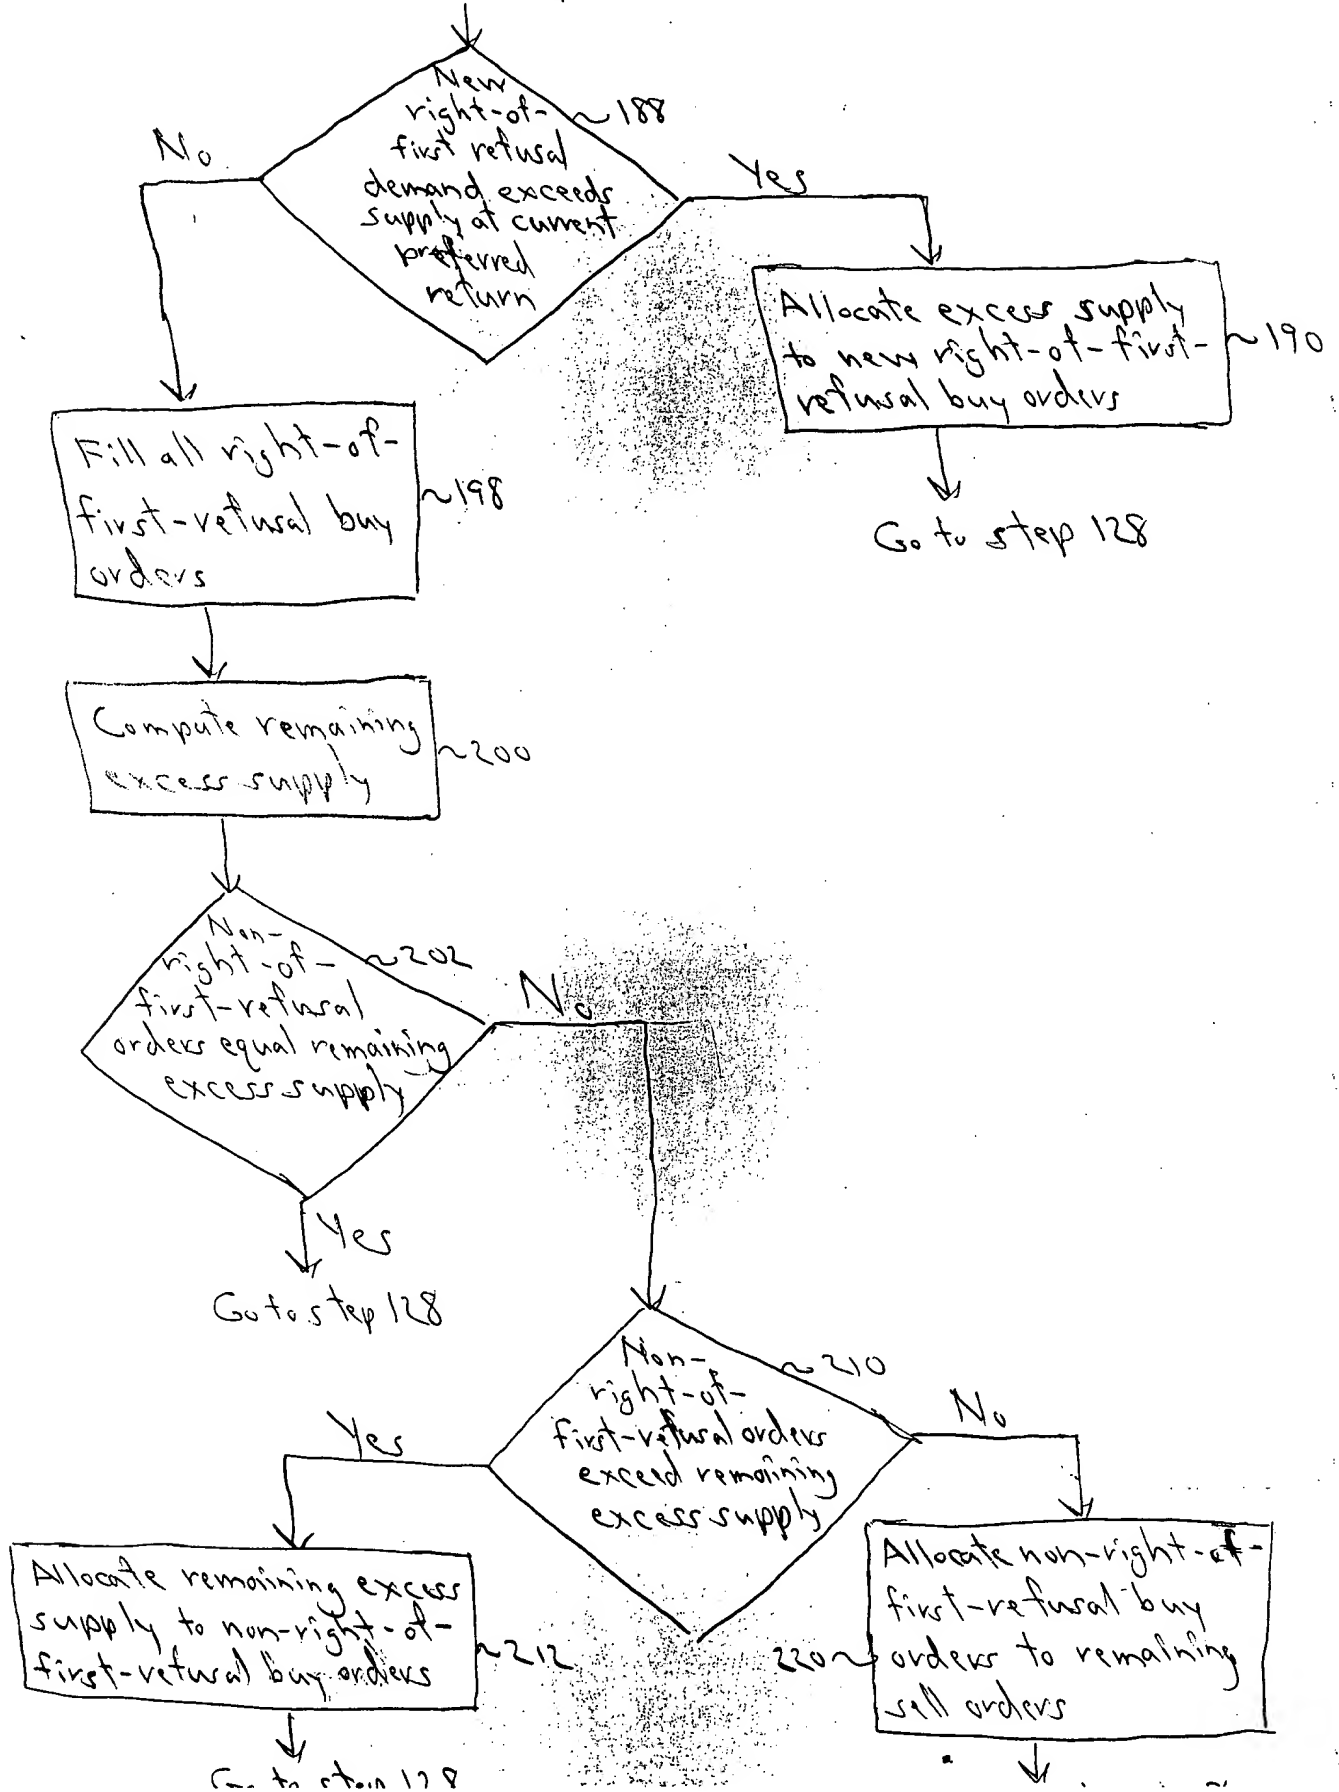 New
right-of-
first refusal
demand exceeds
supply at current
preferred
return
~188
No
Yes
Allocate excess supply
to new right-of-first-
refusal buy orders
~190
Go to step 128
Fill all right-of-
first-refusal buy
orders
~198
Compute remaining
excess supply
~200
Non-
right-of-
first-refusal
orders equal remaining
excess supply
~202
No
Yes
Go to step 128
Non-
right-of-
first-refusal orders
exceed remaining
excess supply
~210
Yes
No
Allocate remaining excess
supply to non-right-of-
first-refusal buy orders
~212
Allocate non-right-of-
first-refusal buy
orders to remaining
sell orders
220~
Go to step 128